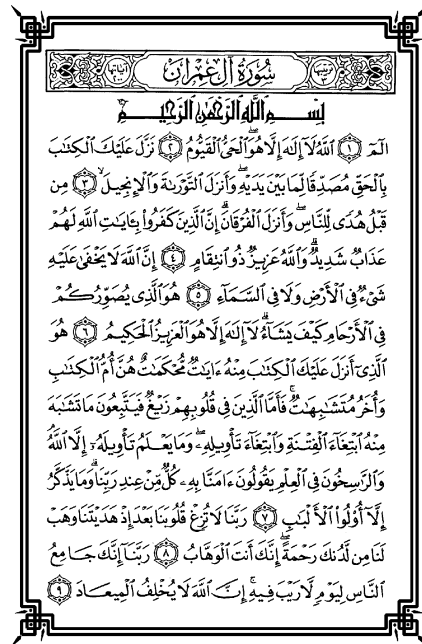 ترتيبها ٣ سُورَةُ آلِ عِمْرَانَ آياتها ٢٠٠
بِسْمِ اللَّهِ الرَّحْمَٰنِ الرَّحِيمِ
الٓمٓ ١ ٱللَّهُ لَآ إِلَٰهَ إِلَّا هُوَ ٱلْحَىُّ ٱلْقَيُّومُ ٢ نَزَّلَ عَلَيْكَ ٱلْكِتَٰبَ
بِٱلْحَقِّ مُصَدِّقًا لِّمَا بَيْنَ يَدَيْهِ وَأَنزَلَ ٱلتَّوْرَىٰةَ وَٱلْإِنجِيلَ ٣ مِن
قَبْلُ هُدًى لِّلنَّاسِ وَأَنزَلَ ٱلْفُرْقَانَ إِنَّ ٱلَّذِينَ كَفَرُوا۟ بِـَٔايَٰتِ ٱللَّهِ لَهُمْ
عَذَابٌ شَدِيدٌ وَٱللَّهُ عَزِيزٌ ذُو ٱنتِقَامٍ ٤ إِنَّ ٱللَّهَ لَا يَخْفَىٰ عَلَيْهِ
شَىْءٌ فِى ٱلْأَرْضِ وَلَا فِى ٱلسَّمَآءِ ٥ هُوَ ٱلَّذِى يُصَوِّرُكُمْ
فِى ٱلْأَرْحَامِ كَيْفَ يَشَآءُ لَآ إِلَٰهَ إِلَّا هُوَ ٱلْعَزِيزُ ٱلْحَكِيمُ ٦ هُوَ
ٱلَّذِىٓ أَنزَلَ عَلَيْكَ ٱلْكِتَٰبَ مِنْهُ ءَايَٰتٌ مُّحْكَمَٰتٌ هُنَّ أُمُّ ٱلْكِتَٰبِ
وَأُخَرُ مُتَشَٰبِهَٰتٌ فَأَمَّا ٱلَّذِينَ فِى قُلُوبِهِمْ زَيْغٌ فَيَتَّبِعُونَ مَا تَشَٰبَهَ
مِنْهُ ٱبْتِغَآءَ ٱلْفِتْنَةِ وَٱبْتِغَآءَ تَأْوِيلِهِۦ وَمَا يَعْلَمُ تَأْوِيلَهُۥٓ إِلَّا ٱللَّهُ
وَٱلرَّٰسِخُونَ فِى ٱلْعِلْمِ يَقُولُونَ ءَامَنَّا بِهِۦ كُلٌّ مِّنْ عِندِ رَبِّنَا وَمَا يَذَّكَّرُ
إِلَّآ أُو۟لُوا۟ ٱلْأَلْبَٰبِ ٧ رَبَّنَا لَا تُزِغْ قُلُوبَنَا بَعْدَ إِذْ هَدَيْتَنَا وَهَبْ
لَنَا مِن لَّدُنكَ رَحْمَةً إِنَّكَ أَنتَ ٱلْوَهَّابُ ٨ رَبَّنَآ إِنَّكَ جَامِعُ
ٱلنَّاسِ لِيَوْمٍ لَّا رَيْبَ فِيهِ إِنَّ ٱللَّهَ لَا يُخْلِفُ ٱلْمِيعَادَ ٩